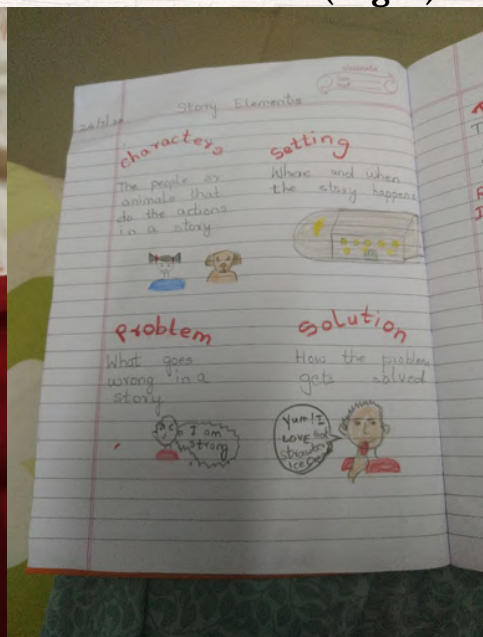 Story Elements
characters
The people or
animals that
do the actions
in a story
setting
Where and when
the story happens
Problem
What goes
wrong in a
story
I am
strong
solution
How the problem
gets solved
Yum! I
LOVE
strawberry
Ice